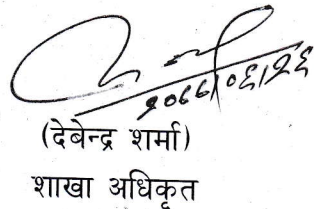 २०७७।०६।२६
(देबेन्द्र शर्मा)
शाखा अधिकृत